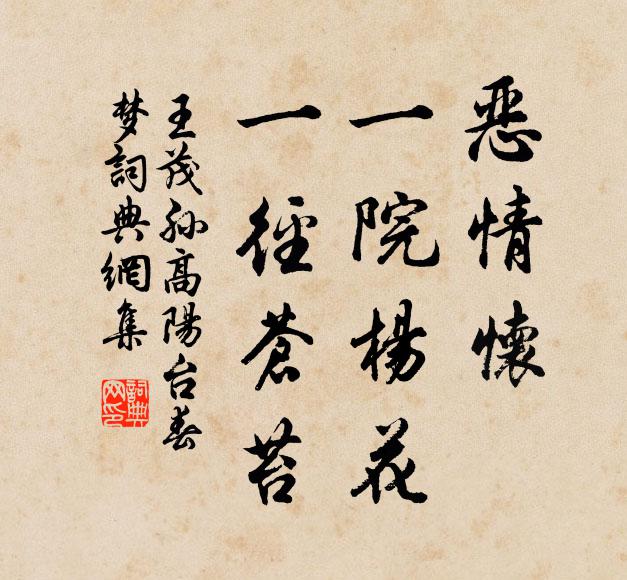 惡情懷
一院楊花
一徑蒼苔
王茂孙高陽台春
梦詞典網集
詞典网印